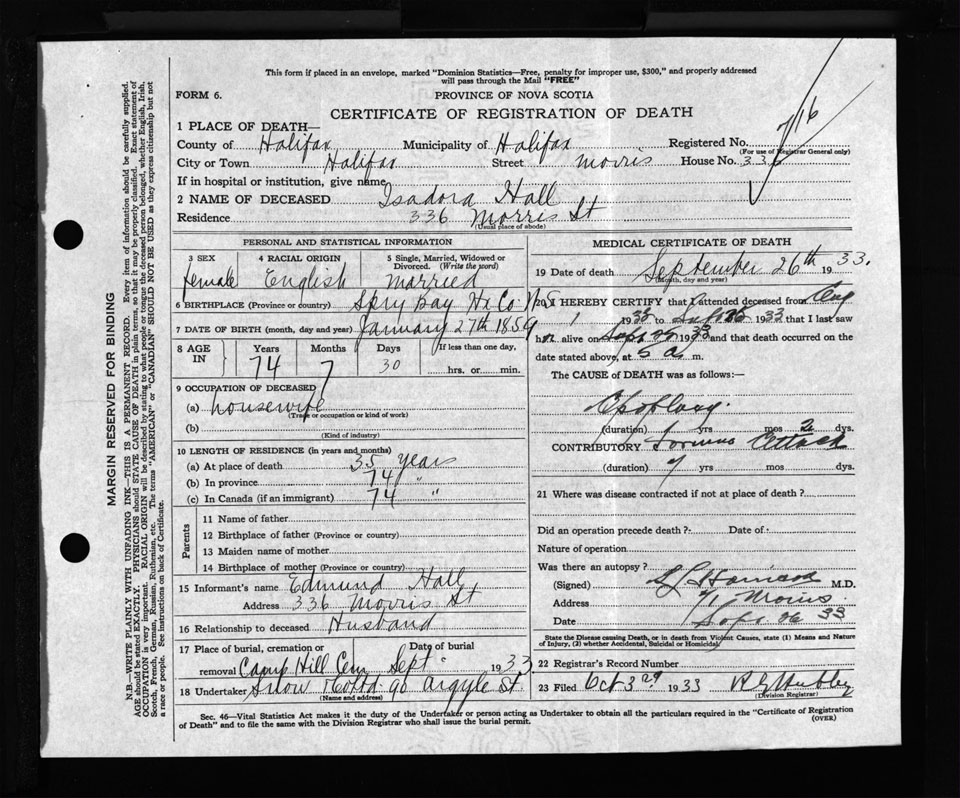 This form if placed in an envelope, marked "Dominion Statistics—Free, penalty for improper use, $300," and properly addressed
will pass through the Mail "FREE"
FORM 6. PROVINCE OF NOVA SCOTIA
CERTIFICATE OF REGISTRATION OF DEATH
716
1 PLACE OF DEATH—
County of Halifax Municipality of Halifax Registered No.
(For use of Registrar General only)
City or Town Halifax Street Morris House No. 336
If in hospital or institution, give name
2 NAME OF DECEASED Isadora Hall
Residence 336 Morris St
(Usual place of abode)
PERSONAL AND STATISTICAL INFORMATION
3 SEX 4 RACIAL ORIGIN 5 Single, Married, Widowed or
Divorced. (Write the word)
female English Married
6 BIRTHPLACE (Province or country) Spry Bay Hx Co. N S
7 DATE OF BIRTH (month, day and year) January 27th 1859
8 AGE IN Years Months Days If less than one day,
74 7 30 hrs. or min.
9 OCCUPATION OF DECEASED
(a) housewife
(Trade or occupation or kind of work)
(b)
(Kind of industry)
10 LENGTH OF RESIDENCE (in years and months)
(a) At place of death 35 years
(b) In province 74 "
(c) In Canada (if an immigrant) 74 "
Parents
11 Name of father
12 Birthplace of father (Province or country)
13 Maiden name of mother
14 Birthplace of mother (Province or country)
15 Informant's name Edmund Hall
Address 336 Morris St
16 Relationship to deceased Husband
17 Place of burial, cremation or Date of burial
removal Camp Hill Cem Sept 1933
18 Undertaker Snow & Co Ltd 90 Argyle St.
(Name and address)
MEDICAL CERTIFICATE OF DEATH
19 Date of death September 26th 1933.
(Month, day and year)
20 I HEREBY CERTIFY that I attended deceased from Aug
1 1933 to Sept 26 1933 that I last saw
h alive on Sept 25 1933 and that death occurred on the
date stated above, at 5 a m.
The CAUSE of DEATH was as follows:—
Apoplexy.
(duration) yrs mos 2 dys.
CONTRIBUTORY Former Attack
(duration) 7 yrs mos. dys.
21 Where was disease contracted if not at place of death?
Did an operation precede death? Date of
Nature of operation
Was there an autopsy?
(Signed) M.D.
Address 71 Morris
Date Sept 26 33
State the Disease causing Death, or in death from Violent Causes, state (1) Means and Nature
of Injury, (2) whether Accidental, Suicidal or Homicidal.
22 Registrar's Record Number
23 Filed Oct 3rd 1933
(Division Registrar)
Sec. 46—Vital Statistics Act makes it the duty of the Undertaker or person acting as Undertaker to obtain all the particulars required in the "Certificate of Registration
of Death" and to file the same with the Division Registrar who shall issue the burial permit.
(OVER)
MARGIN RESERVED FOR BINDING
N.B.—WRITE PLAINLY WITH UNFADING INK—THIS IS A PERMANENT RECORD. Every item of information should be carefully supplied.
AGE should be stated EXACTLY. PHYSICIANS should STATE CAUSE OF DEATH in plain terms, so that it may be properly classified. Exact statement of
OCCUPATION is very important. RACIAL ORIGIN will be described by stating to what people or tongue the deceased person belonged, whether English, Irish,
Scotch, French, German, Russian, Ruthenian, etc. The terms "AMERICAN" or "CANADIAN" SHOULD NOT BE USED as they express citizenship but not
a race or people. See instructions on back of Certificate.